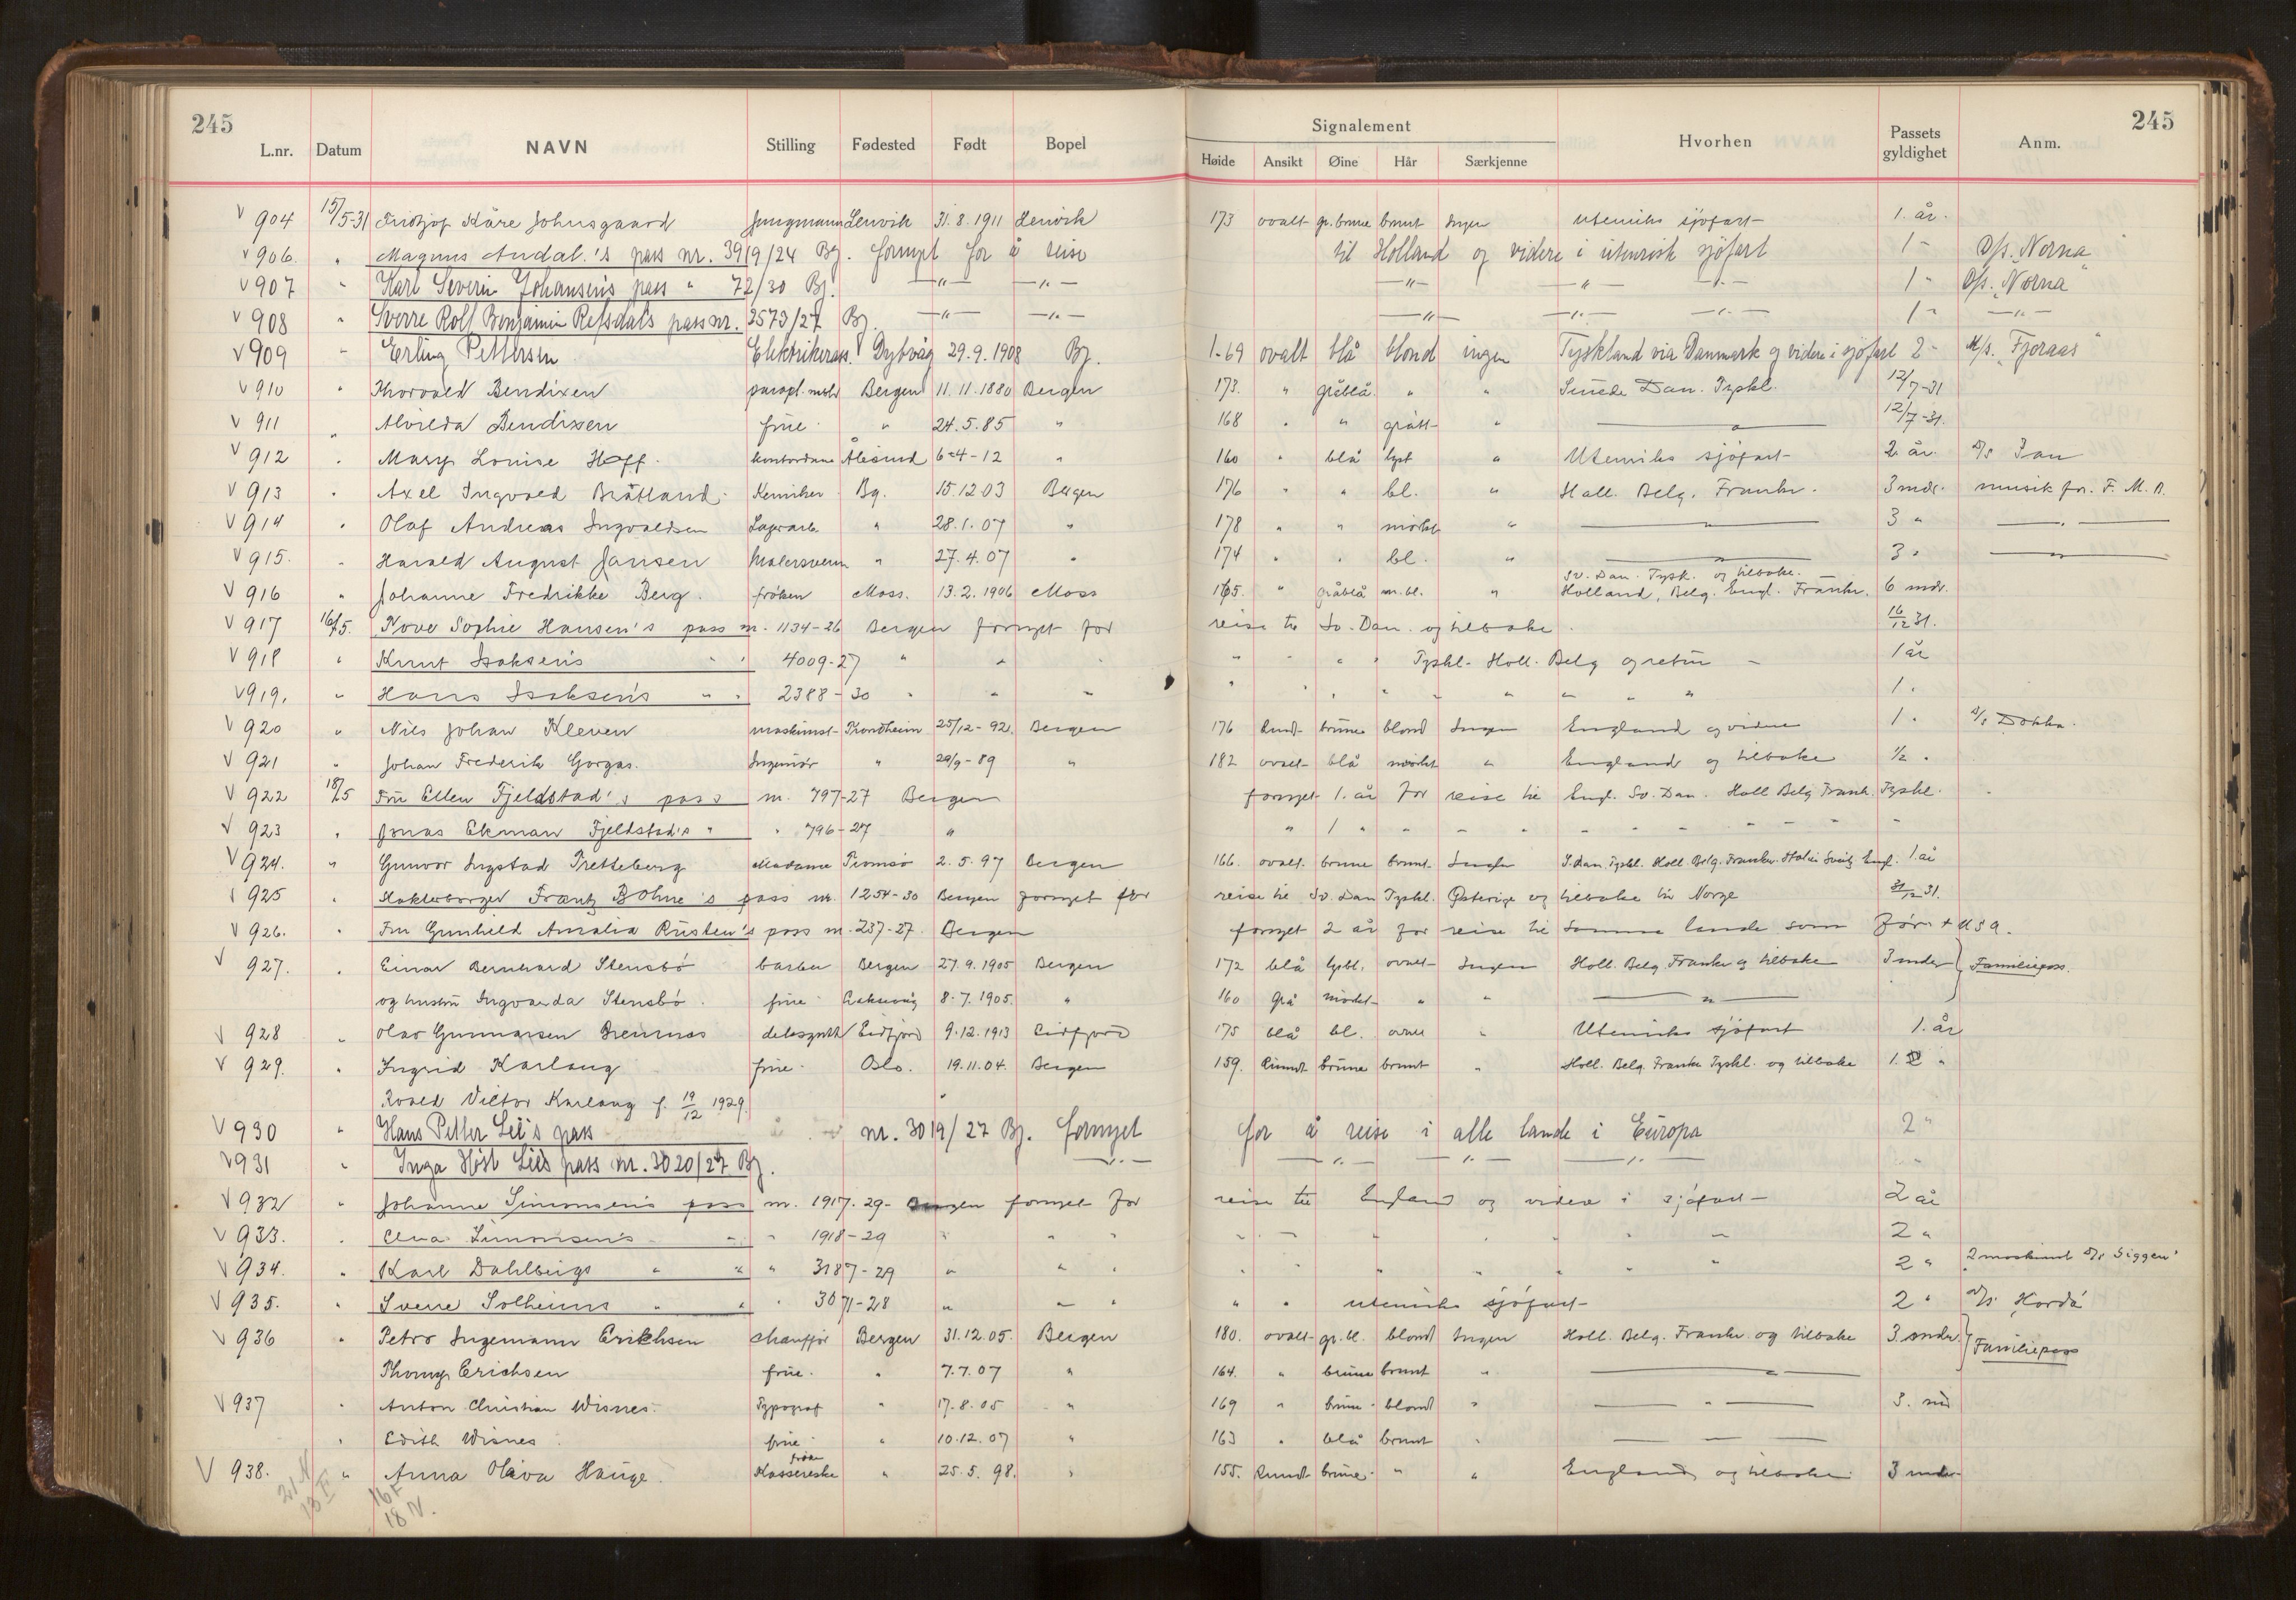 245 245
Signalement
L.nr. Datum NAVN Stilling Fødested Født Bopel Høide Ansikt Øine Hår Særkjenne Hvorhen Passets gyldighet Anm.
V 904 15/5-31 Fridtjof Kåre Johnsgaard Jungmann Lenvik 31.8.1911 Lenvik 173 ovalt gr. brune brunt Ingen utenriks sjøfart 1. år.
V 906. " Magnus Andal.'s pass nr. 3919/24 Bg. fornyet for å reise til Holland og videre i utenrisk sjøfart 1 - D/s. "Norna"
V 907 " Karl Severin Johansen's pass " 72/30 Bg. -"- -"- -"- -"- -"- 1 " D/s. "Norna"
V 908 " Sverre Rolf Benjamin Refsdal's pass nr. 2573/27 Bg. -"- -"- -"- -"- -"- 1 " -"-
V 909 " Erling Pettersen Elektrikerass. Dybvåg 29.9.1908 Bg. 1-69 ovalt blå blond ingen Tyskland via Danmark og videre i sjøfart 2 - M/s. "Fjoraas"
V 910 " Thorvald Bendixen Bergen 11.11.1880 Bergen 173. " gråblå " " Sverige Dan. Tyskl. 12/7-31
V 911 " Alvilda Bendixen frue " 24.5.85 " 168 " " grått " -"- 12/7-31.
V 912 " Mary Louise Hoff. kontordame Ålesund 6-4-12 " 160 " blå lyst " Utenriks sjøfart 2 år. D/s Jan
V 913 " Axel Ingvald Bråtland. Kemiker Bg. 15.12 03 Bergen 176 " " bl. " Holl. Belg. Frankr. 3 mdr. musik for. F. M. B.
V 914 " Olaf Andreas Ingvaldsen Lagerarb. " 28.1.07 " 178 " " mørkt " -"- 3 " -"-
V 915. " Harald August Jansen Malersvenn " 27.4.07 " 174 " " bl. " -"- 3 " -"-
Sv. Dan. Tysk. og tilbake.
V 916 " Johanne Fredrikke Berg. frøken Moss. 13.2.1906 Moss 165. " gråblå m. bl. " Holland, Belg. Engl. Frankr. 6 mdr.
V 917 16/5. Tove Sophie Hansen's pass nr. 1134-26 Bergen fornyet for reise til Sv. Dan. og tilbake. 16/12 31.
V 918 " Knut Isaksen's " " 4009-27 " " " " " " Tyskl. Holl. Belg og retur - 1 år
V 919. " Hans Isaksen's " " 2388-30 " " " " " " " " " " " " 1 "
V 920 " Nils Johan Kleven maskinist Trondheim 25/12-92. Bergen 176 Rundt brune blond Ingen England og videre 1 " D/s Dokka.
V 921 " Johan Frederik Gorgas. Ingeniør " 29/9-89 " 182 ovalt blå mørkt " England og tilbake 1/2 "
V 922 18/5 Fru Ellen Fjeldstad's pass nr. 797-27 Bergen fornyet 1. år for reise til Engl. Sv. Dan. Holl Belg Frank. Tyskl.
V 923 " Jonas Ekman Fjeldstad's " " 796-27 " " 1 " " " " " " " " " "
V 924. " Gunvor Ingstad Tretteberg Madame Tromsø 2.5.97 Bergen 166. ovalt. brune brunt. Ingen S. Dan. Tyskl. Holl. Belg. Frankr. Italia Sveitz Engl. 1 år
V 925 " Frantz Bohne's pass nr. 1254-30 Bergen fornyet for reise til Sv. Dan Tyskl. Østerige og tilbake til Norge 31/12 31.
V 926. " Fru Gunhild Amalia Rusten's pass nr. 237-27. Bergen fornyet 2 år for reise til samme lande som før + USA.
V 927. " Einar Bernhard Stensbø barber Bergen 27.9.1905 Bergen 172 blå lysbl. ovalt Ingen Holl. Belg. Frankr og tilbake 3 mdr } Familiepass.
og hustru Ingvarda Stensbø. frue 8.7.1905. " 160 grå mørkt " " -"-
V 928 " Olav Gunnarsen Grennes Eidfjord 9.12.1913 Eidfjord 175 blå bl. ovalt " Utenriks sjøfart 1. år
V 929. " Ingrid Karlaug frue. Oslo. 19.11.04. Bergen 159. Rundt brune brunt " Holl. Belg. Frankr Tyskl. og tilbake 1. "
Roald Victor Karlaug f. 19/12 1929.
V 930 " Hans Petter Lie's pass nr. 3019/27 Bg. fornyet for å reise i alle lande i Europa 2 "
V 931 " Inga Høst Lie's pass nr. 3020/27 Bg. -"- -"- -"- -"- "
V 932 " Johanne Simonsen's pass nr. 1917.29- Bergen fornyet for reise til England og videre i sjøfart - 2 år
V 933. " Elna Simonsen's " " 1918-29 " " " " " " " " " 2 "
V 934. " Karl Dahlberg's " " " 3187-29 " " " " " " " " " 2 " 2 maskinist D/s Siggen"
V 935. " Sverre Solheims " " " 3071-28 " " " " " utenriks sjøfart - 2 " D/s Hordå
V 936 " Petro Ingemann Erichsen chauffør Bergen 31.12.05. Bergen 180. ovalt gr. bl. blond Ingen Holl. Belg. Frankr. og tilbake 3. mdr. } Familiepass
Thomy Erichsen frue. " 7.7.07 " 164. " brune brunt " -"-
V 937 " Anton Christian Wisnes. Typograf " 17.8.05 " 169 " brune blond " -"- 3. md
" Edith Wisnes frue " 10.12.07 " 163 " blå brunt " -"-
frøken
V 938. " Anna Oliva Hauge. Kassererske " 25.5.98. " 155. Rundt brune " " England og tilbake 3 mdr
21 N 16 F
13 F 18 N.